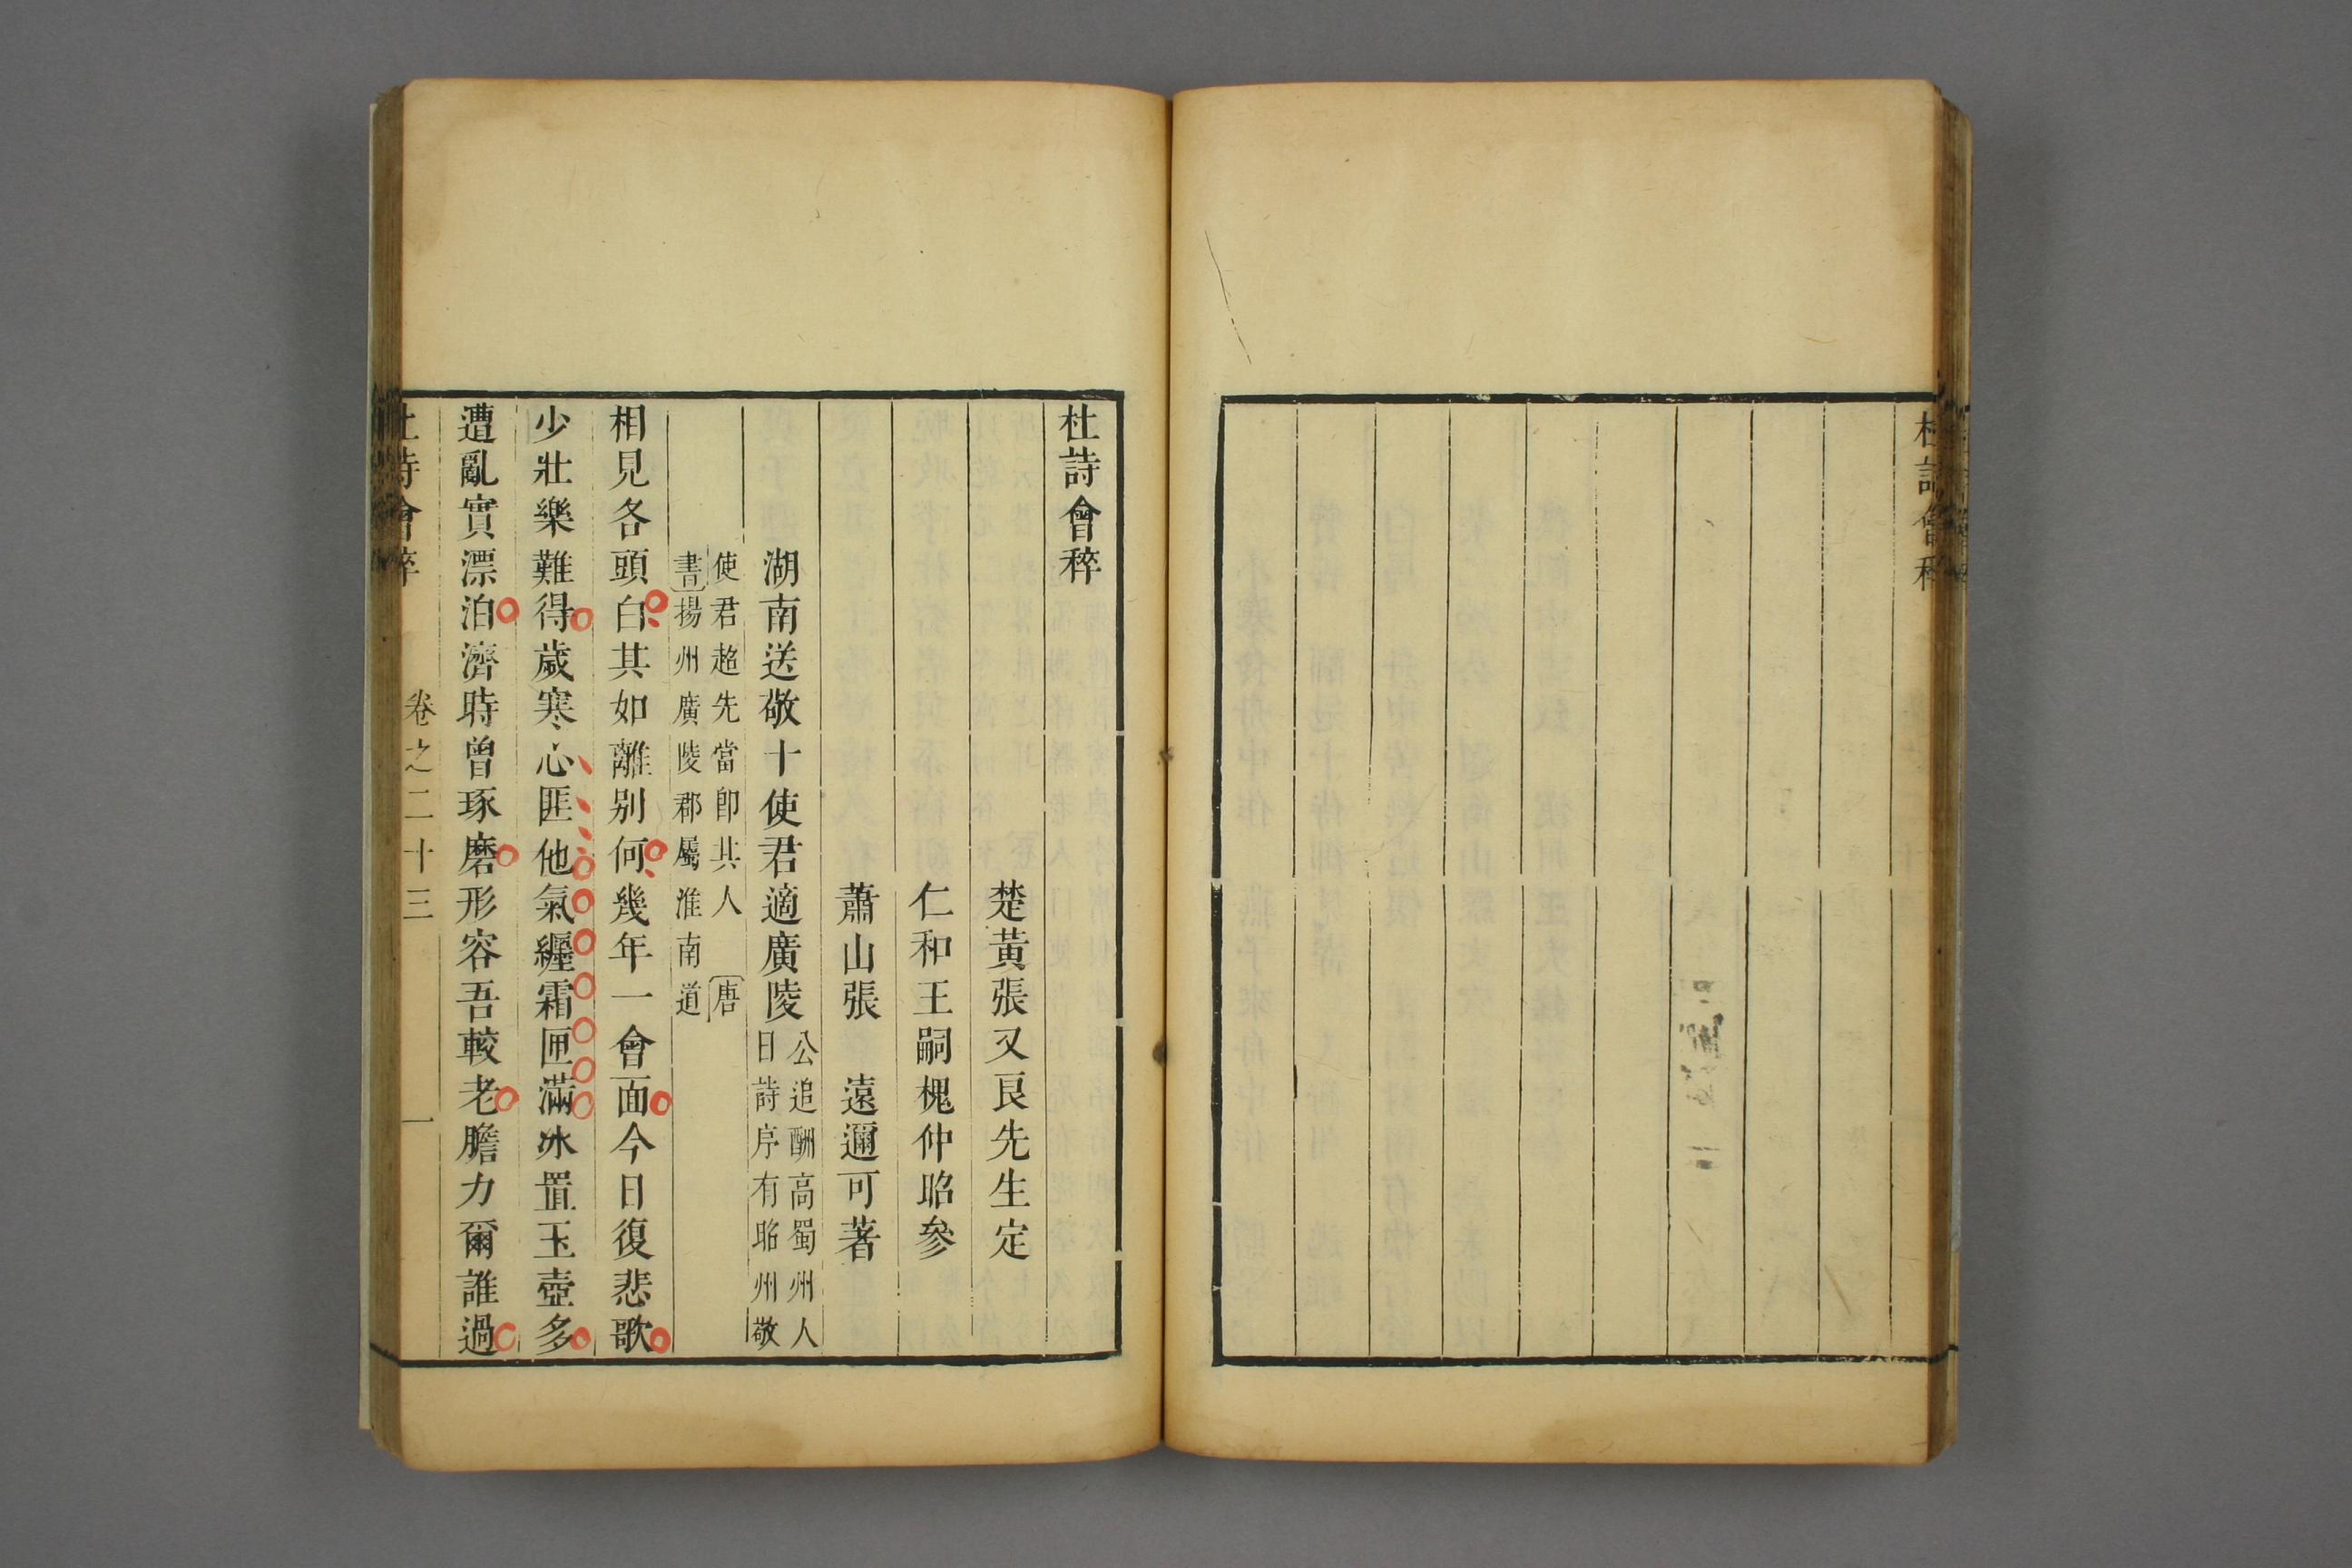 杜詩會稡
杜詩會稡
楚黃張又良先生定
仁和王嗣槐仲昭參
蕭山張　遠邇可著
湖南送敬十使君適廣陵
公追酬高蜀州人
日詩序有昭州敬
使君超先當即其人　唐
書揚州廣陵郡屬淮南道
相見各頭白其如離别何幾年一會面今日復悲歌
少壯樂難得歲寒心匪他氣纒霜匣滿冰置玉壺多
遭亂實漂泊濟時曾琢磨形容吾較老膽力爾誰過
杜詩會稡　卷之二十三　一